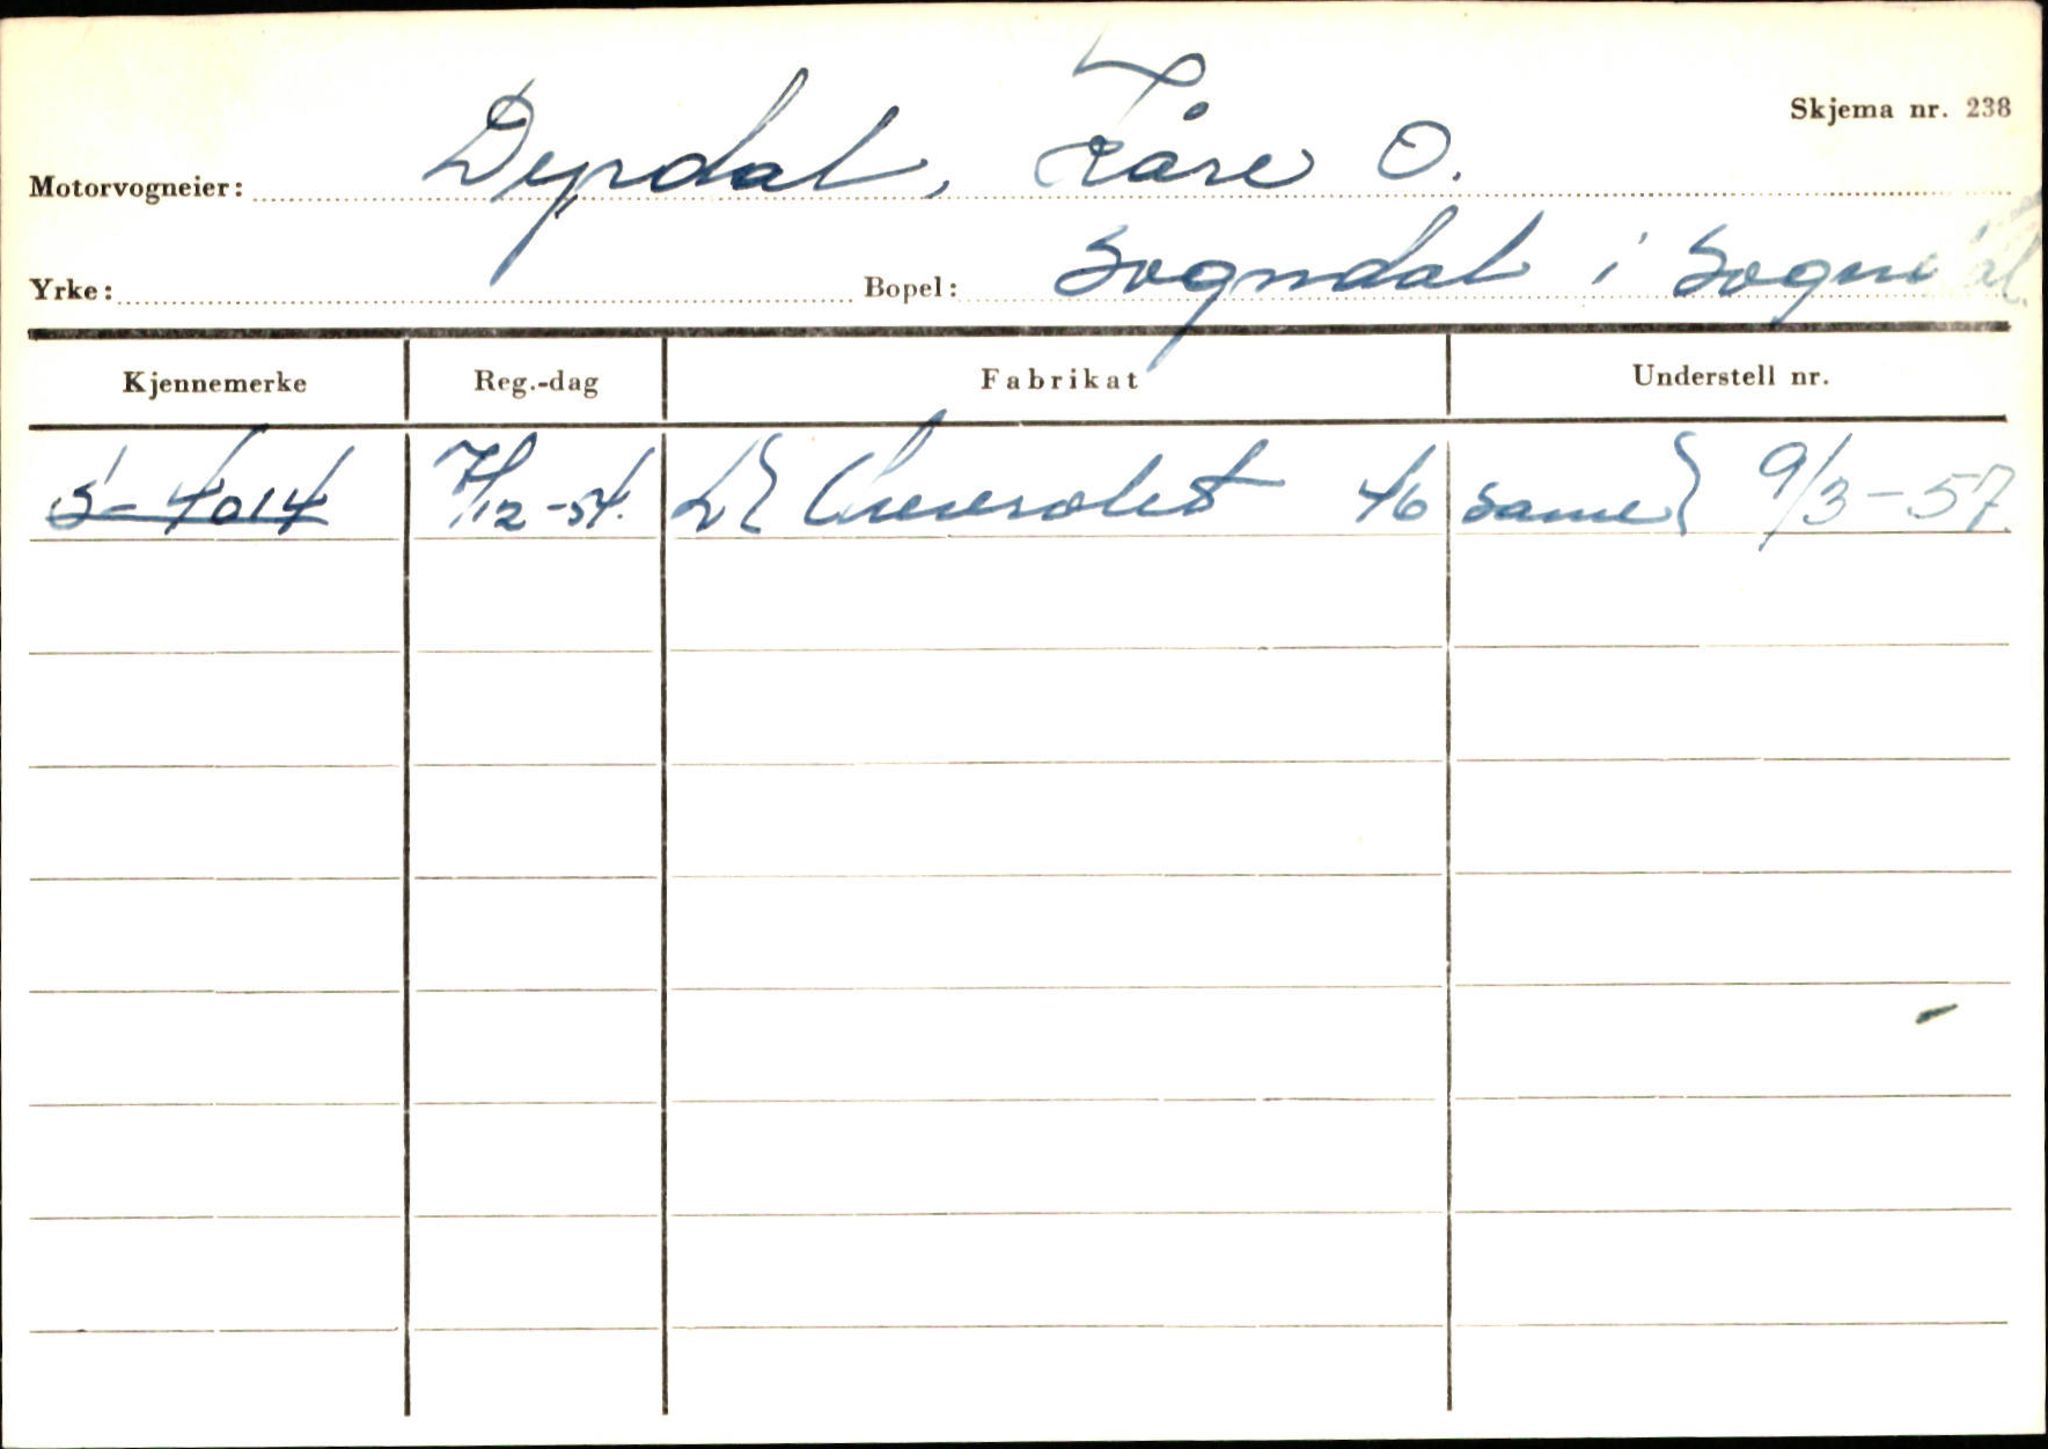 Skjema nr. 238
Motorvogneier: Dyrdal, Kåre O.
Yrke: Bopel: Sogndal i Sogn
Kjennemerke Reg.-dag Fabrikat Understell nr.
S-4014 7/12-54. L Chevrolet 46 same } 9/3-57.